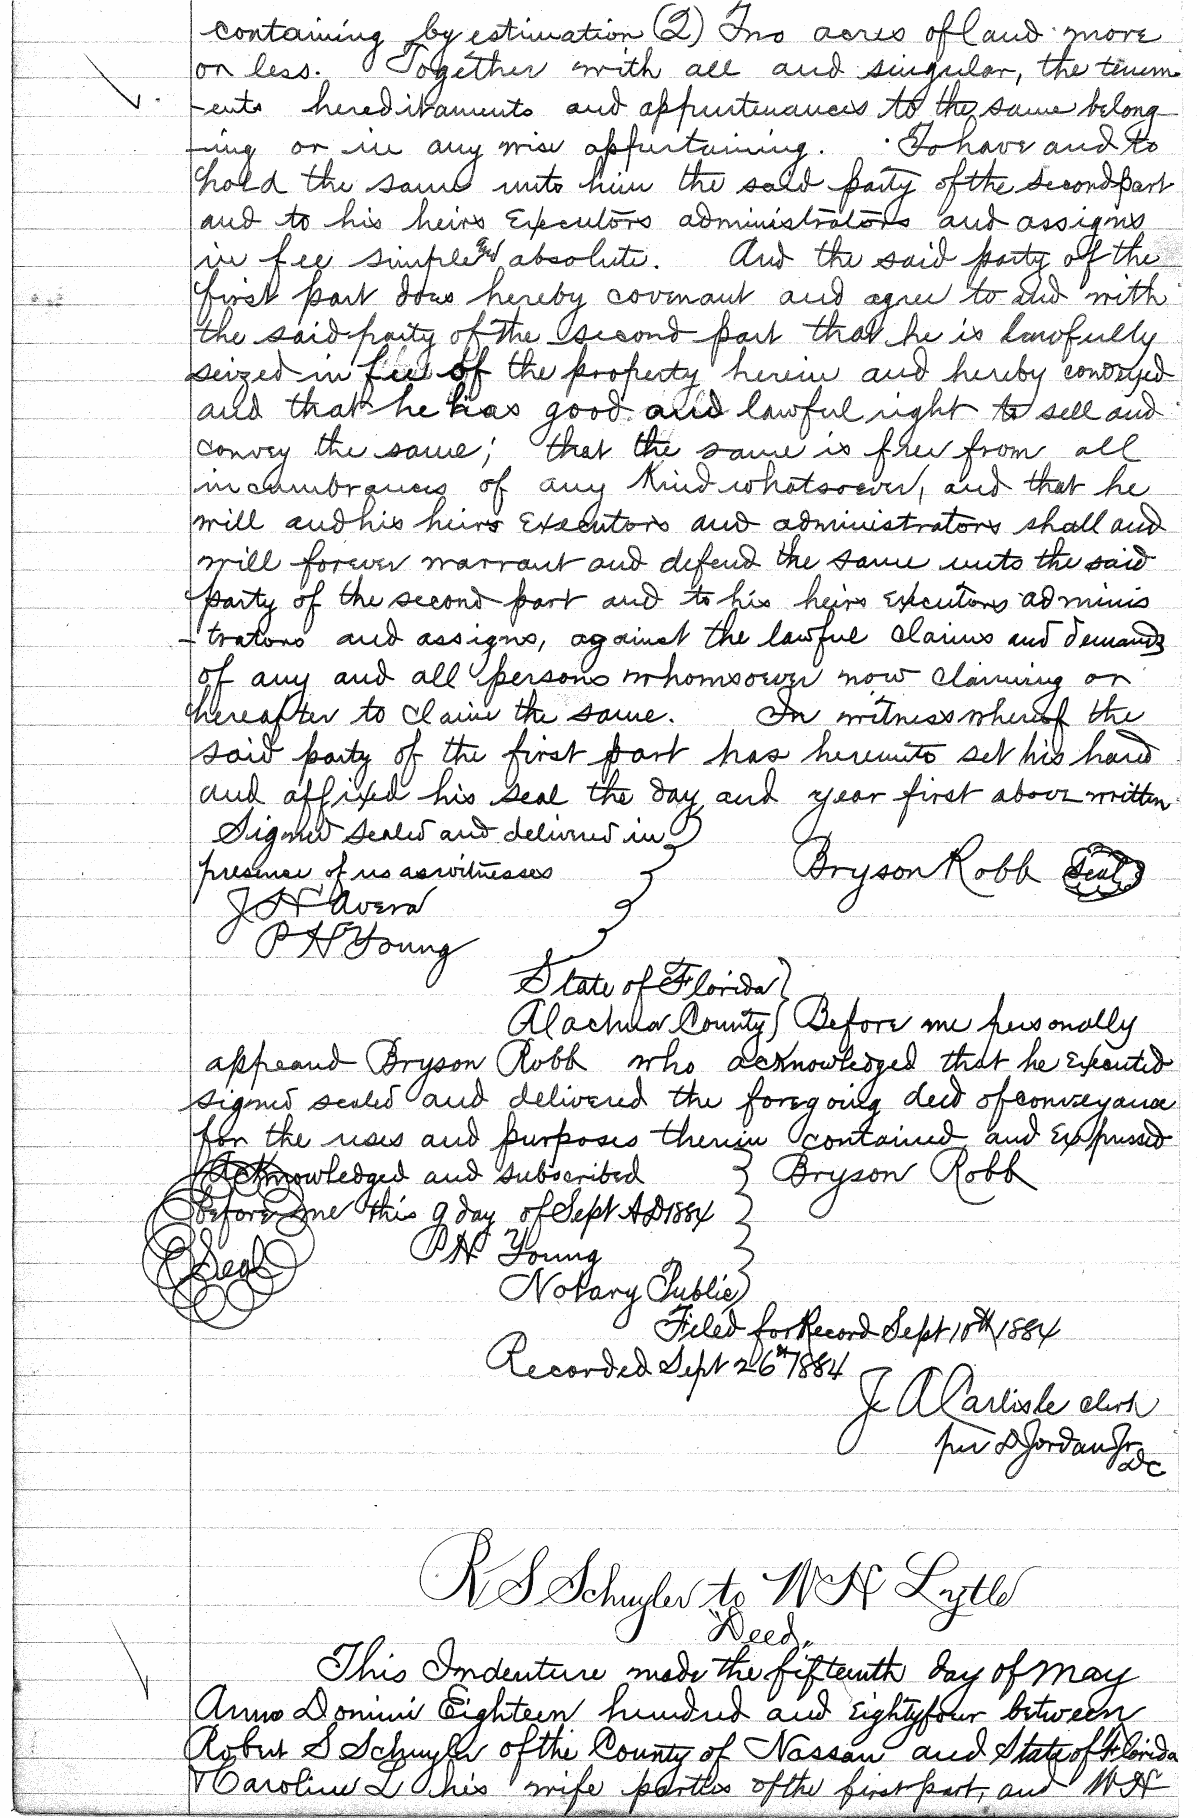 containing by estimation (2) Two acres of land more
or less. Together with all and singular, the tenem
-ents hereditaments and appurtenances to the same belong
-ing or in any wise appurtaining. To have and to
hold the same unto him the said party of the second part
and to his heirs Executors administrators and assigns
in fee simple and absolute. And the said party of the
first part does hereby covenant and agree to and with
the said party of the second part that he is lawfully
seized in fee of the property herein and hereby conveyed
and that he has good and lawful right to sell and
convey the same; that the same is free from all
incumbrances of any Kind whatsoever, and that he
will and his heirs Executors and administrators shall and
will forever warrant and defend the same unto the said
party of the second part and to his heirs Executors adminis
-trators and assigns, against the lawful claims and demands
of any and all persons whomsoever now claiming or
hereafter to claim the same. In witness whereof the
said party of the first part has hereunto set his hand
and affixed his seal the day and year first above written
Signed sealed and delivered in
presence of us as witnesses Bryson Robb Seal
J H Avera
P H Young
State of Florida
Alachua County Before me personally
appeared Bryson Robb who acknowledged that he Executed
signed sealed and delivered the foregoing deed of conveyance
for the uses and purposes therein contained and Expressed
Acknowledged and subscribed Bryson Robb
before me this 9 day of Sept AD 1884
Seal P H Young
Notary Public
Filed for Record Sept 10th 1884
Recorded Sept 26th 1884
J A Carlisle clerk
per D Jordan Jr
DC
R S Schuyler to W H Lytle
"Deed"
This Indenture made the fifteenth day of May
Anno Domini Eighteen hundred and Eightyfour between
Robert S Schuyler of the County of Nassau and State of Florida
& Caroline L his wife parties of the first part, and W H